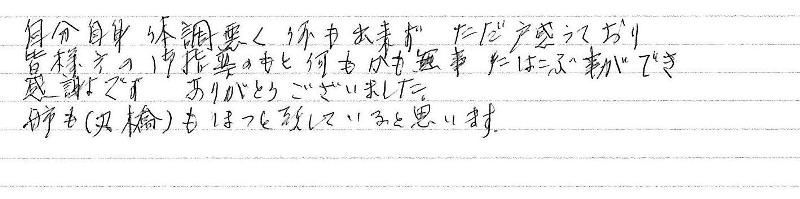 自分自身 体調悪く 何も出来ず ただ戸惑うており
皆様方の御指導のもと何もかも無事にはこぶ事ができ
感謝です ありがとうございました。
姉も(  橋)もほっと致していると思います。